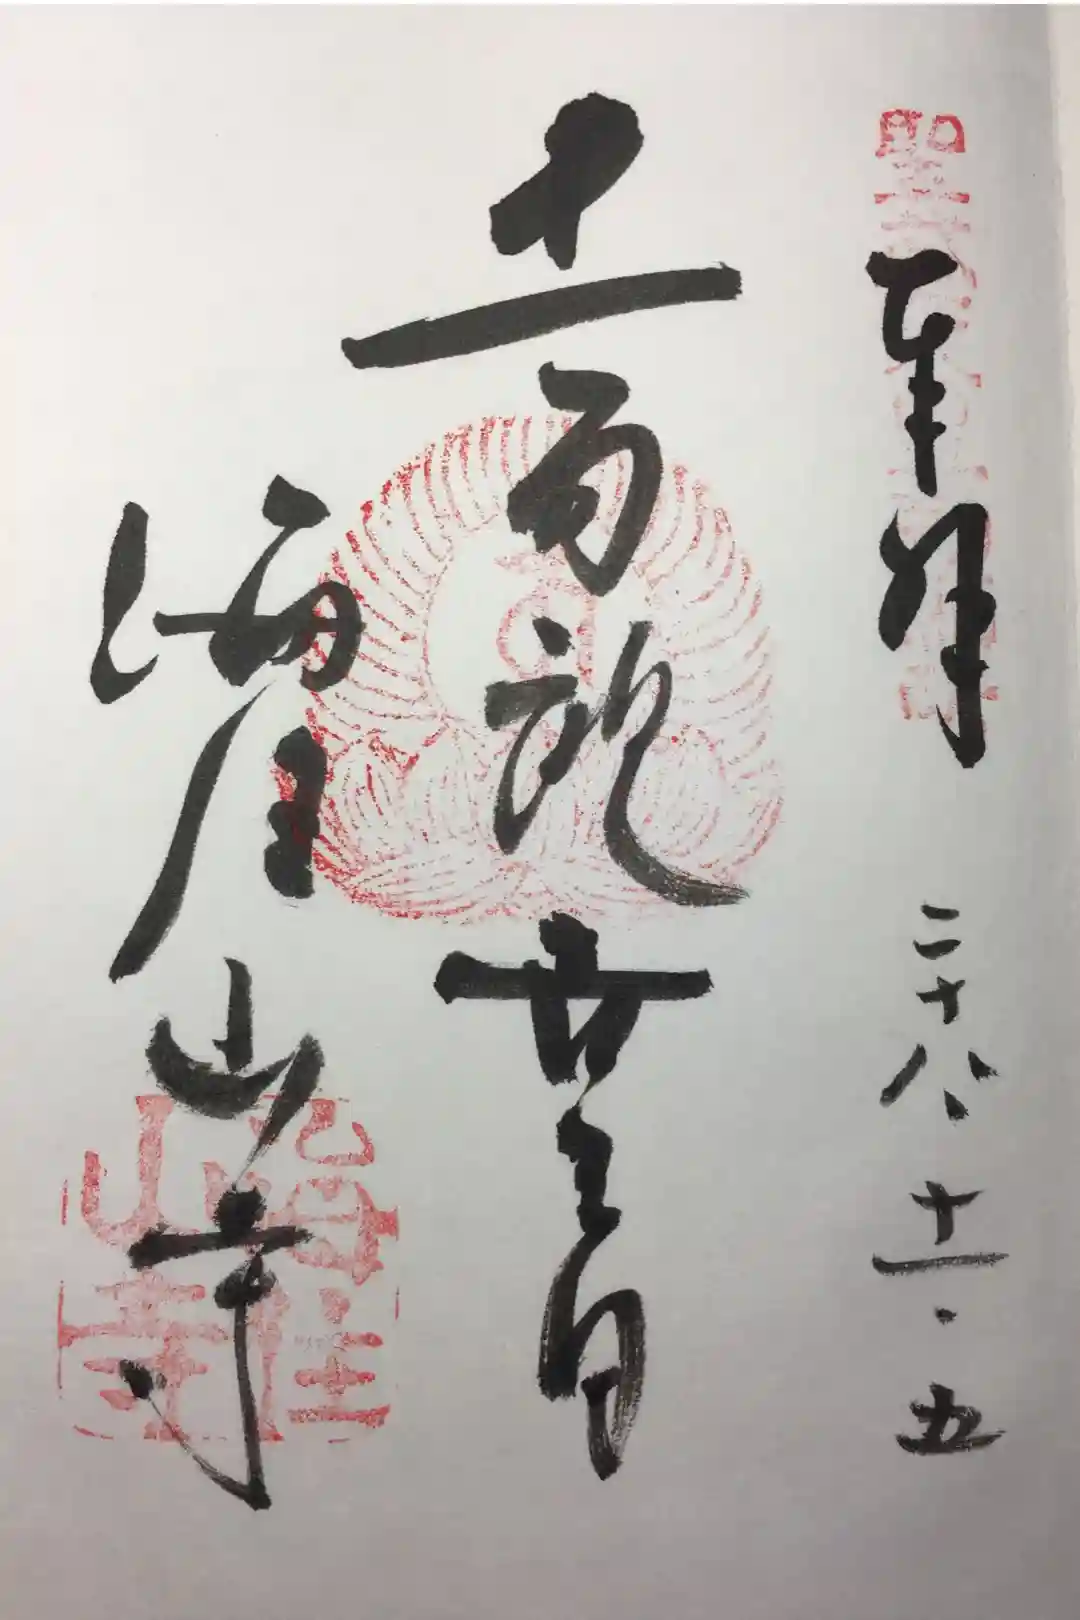 奉拝 二十八.十一.五
十一面観世音
海住山寺
海住山寺